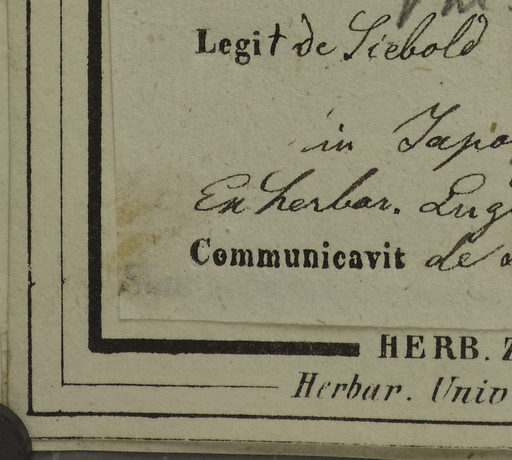 Legit de Siebold
in Japo
Ex herbar. Lug
Communicavit de
HERB. Z
Herbar. Univ